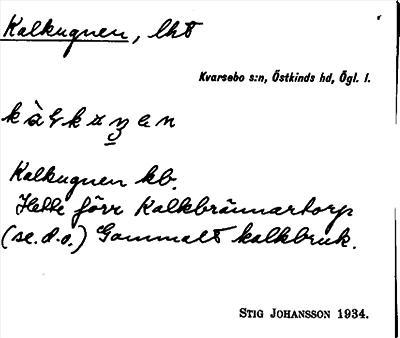 Kalkugnen, lht
Kvarsebo s:n, Östkinds hd, Ögl. l.
Kalkugnen kb.
Hette förr Kalkbrännartorp
(se. d. o.) Gammalt kalkbruk.
STIG JOHANSSON 1934.